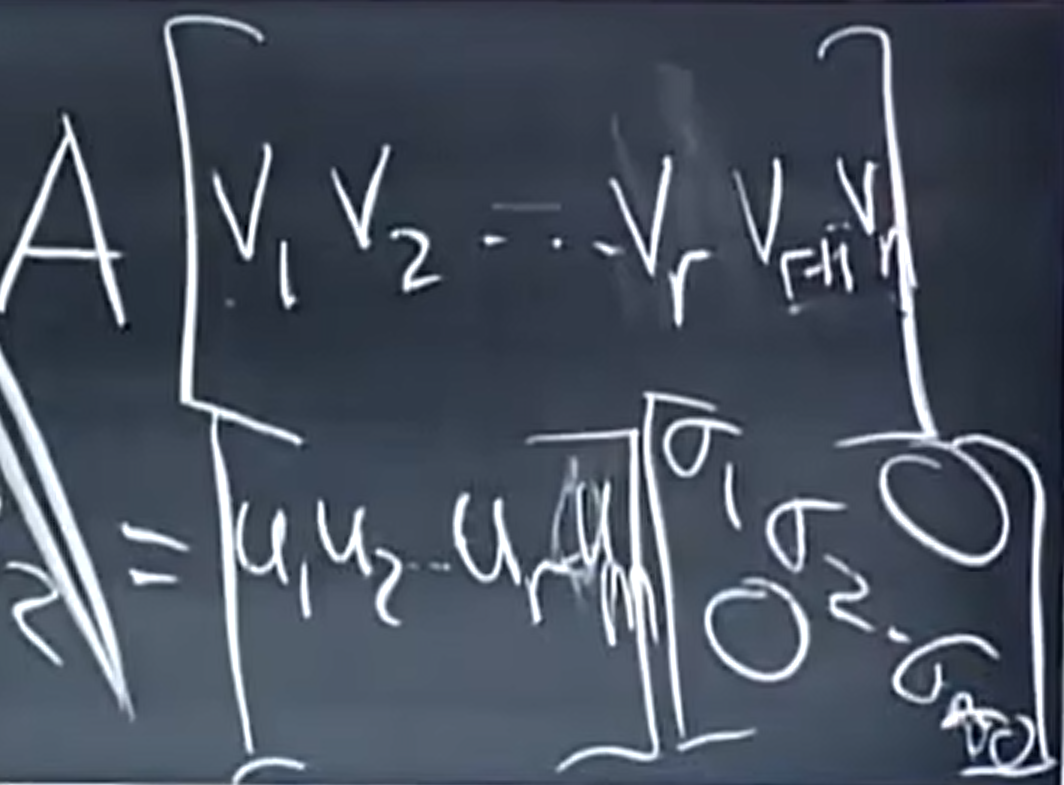 A [ v₁ v₂ - - - vᵣ vᵣ₊₁ vₙ ]
= [ u₁ u₂ .. uᵣ uₘ ] [ σ₁ σ₂ . σ 0 0 0 ]